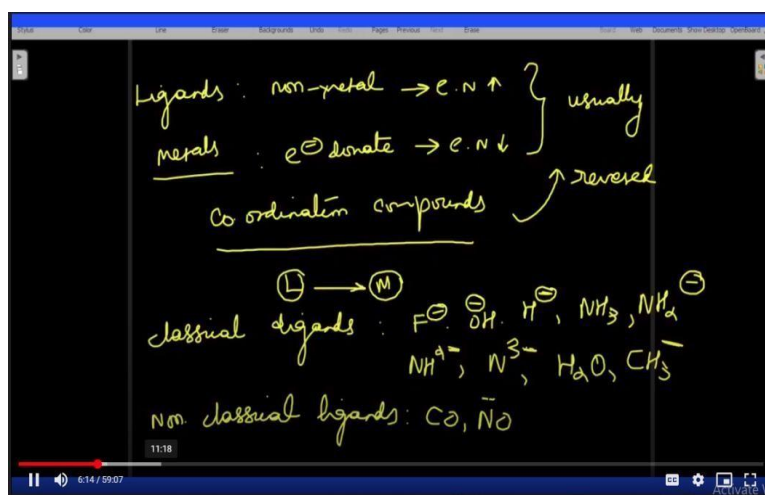 Stylus Color Line Eraser Backgrounds Undo Redo Pages Previous Next Erase Board Web Documents Show Desktop OpenBoard
Ligands : non-metal → e.N ↑ } usually
metals : e⊖ donate → e.N ↓
↑ reversed
Co ordination compounds
L → M
classical ligands : F⊖. ⊖OH. H⊖, NH3, NH2⊖
NH2-, N3-, H2O, CH3-
Non classical ligands : CO, N̄O
11:18
6:14 / 59:07
CC